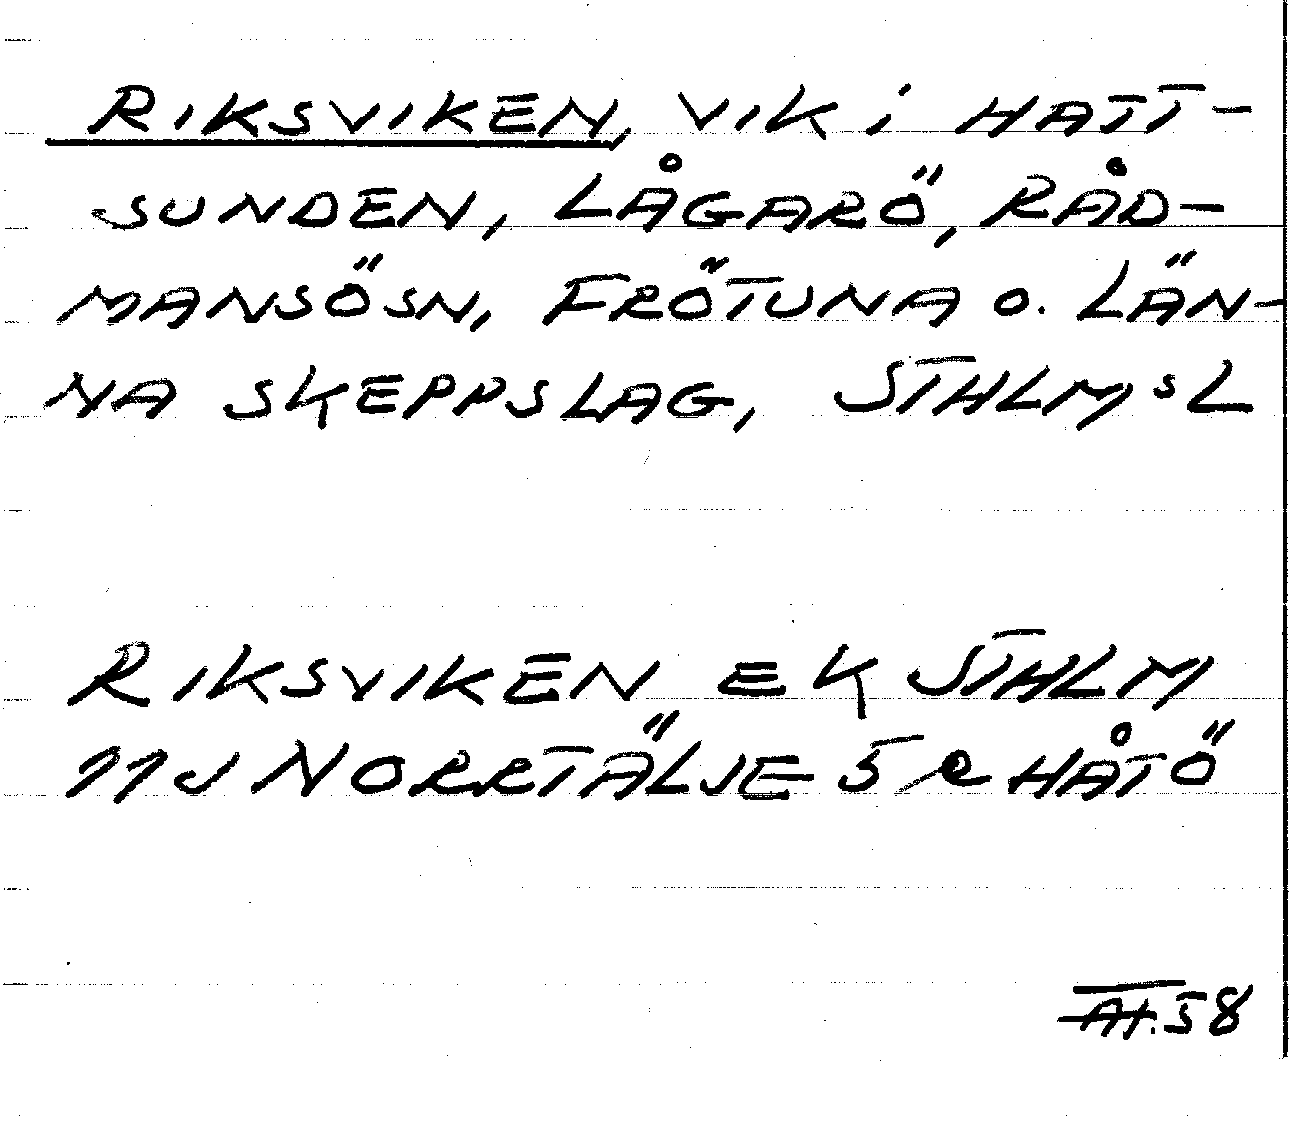 RIKSVIKEN, VIK i HATT-
SUNDEN, LÅGARÖ, RÅD-
MANSÖSN, FRÖTUNA o. LÄN-
NA SKEPPSLAG, STHLMsL
RIKSVIKEN EK STHLM
11J NORRTÄLJE 5 R HÅTÖ
58